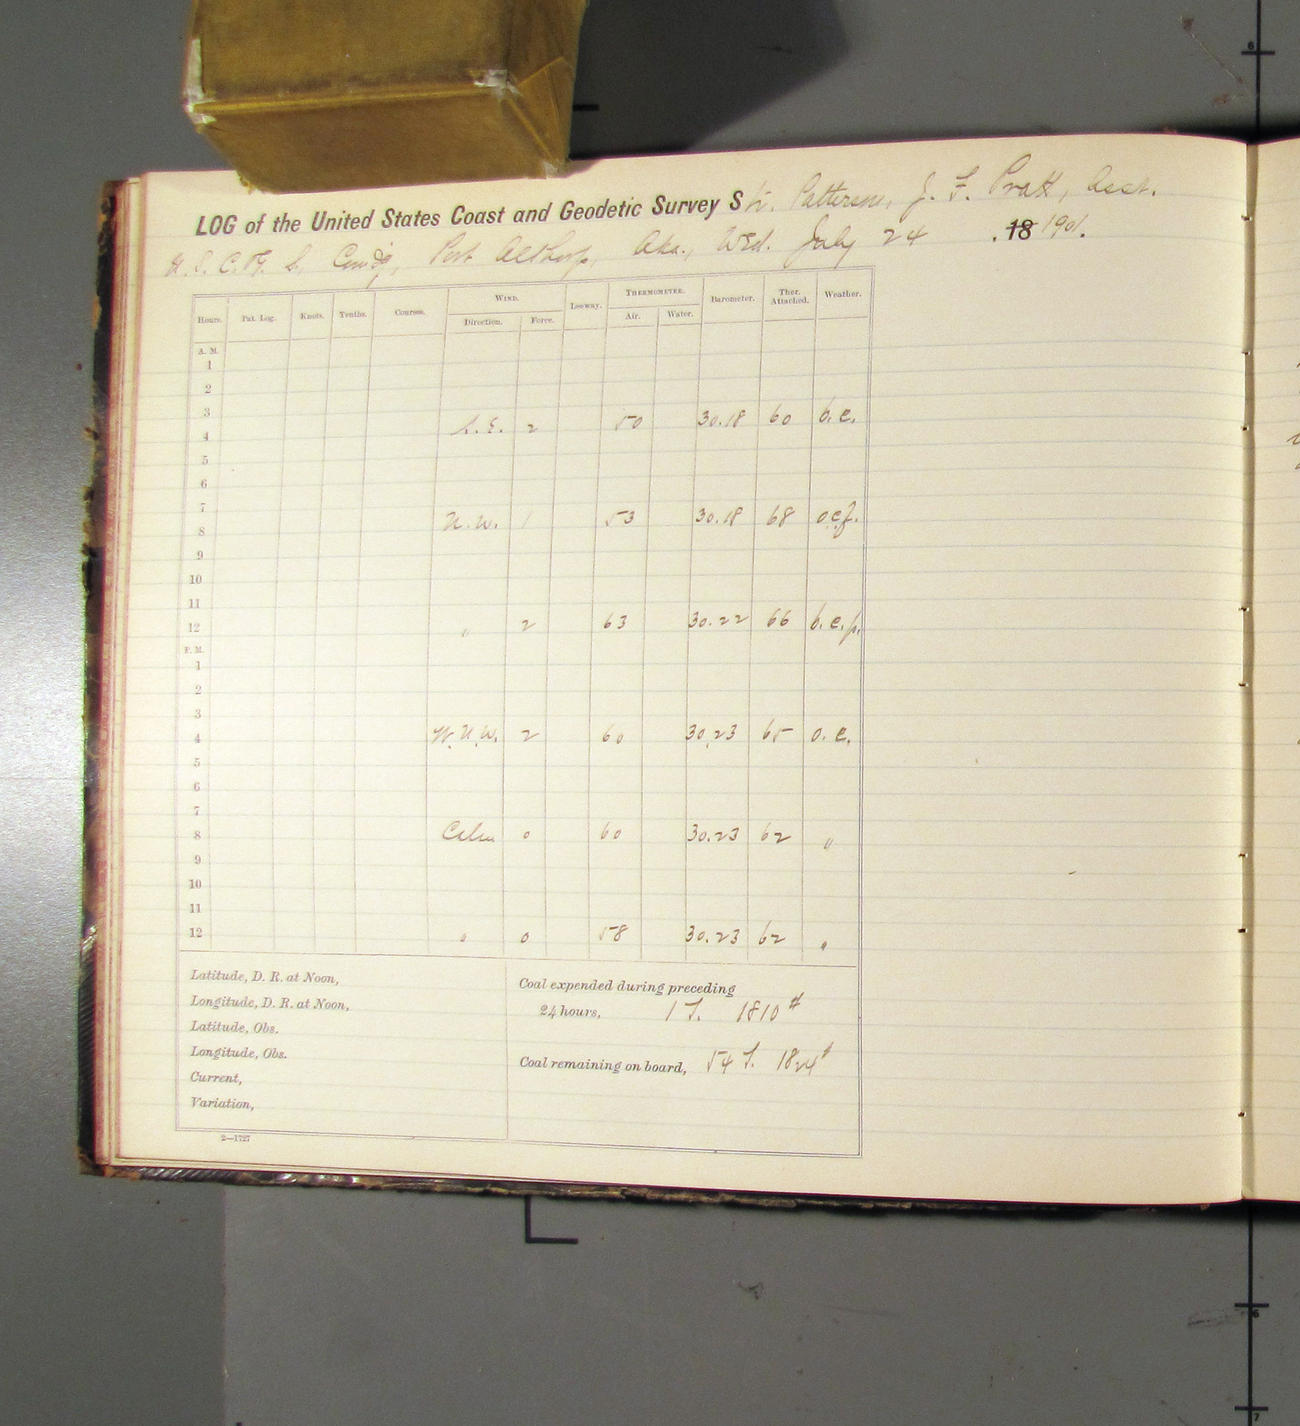 LOG of the United States Coast and Geodetic Survey Str. Patterson, J. F. Pratt, Asst.
U. S. C. & G. S. Com'd'g, Port Althorp, Aka., Wed. July 24 . 18 1901.
Hours. Pat. Log. Knots. Tenths. Courses. WIND. Leeway. THERMOMETER. Barometer. Ther. Attached. Weather.
Direction. Force. Air. Water.
A. M.
1
2
3
4 S.E. 2 50 30.18 60 b.c.
5
6
7
8 N.W. 1 53 30.18 68 o.c.f.
9
10
11
12 " 2 63 30.22 66 b.c.p.
P. M.
1
2
3
4 W.N.W. 2 60 30.23 65 o.c.
5
6
7
8 Calm 0 60 30.23 62 "
9
10
11
12 " 0 58 30.23 62 "
Latitude, D. R. at Noon,
Longitude, D. R. at Noon,
Latitude, Obs.
Longitude, Obs.
Current,
Variation,
Coal expended during preceding
24 hours, 1 T. 1810 #
Coal remaining on board, 54 T. 1824 #
2—1727
6
6
7